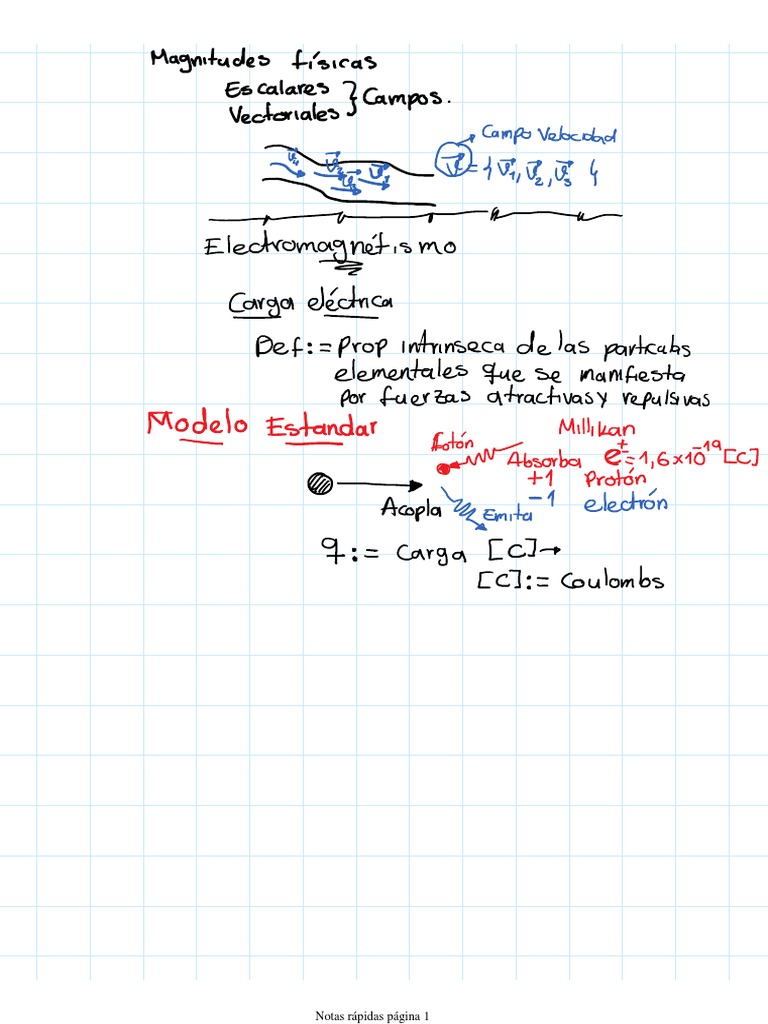 Magnitudes físicas
Escalares
Vectoriales } Campos.
Campo Velocidad
v⃗ = {v⃗1, v⃗2, v⃗3 }
v⃗1 v⃗2 v⃗3
Electromagnétismo
Carga eléctrica
Def:= Prop intrinseca de las particulas
elementales que se manifiesta
por fuerzas atractivas y repulsivas
Modelo Estandar
Millikan
fotón
Absorba e±=1,6×10⁻¹⁹ [C]
+1 Protón
Acopla Emita -1 electrón
q:= Carga [C]→
[C]:= Coulombs
Notas rápidas página 1